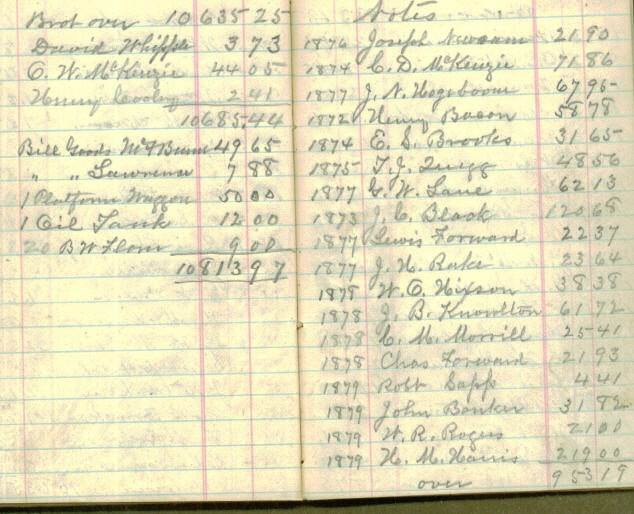 Brot over 10635 25
David Whipple 3 73
C. W. McKenzie 44 05
Henry Cooley 2 41
10685.44
Bill Goods 49 65
" " Lawrence 7 88
1 Platform Waggon 50 00
1 Oil Tank 12 00
20 B W Flour 9 00
10813 97
Notes
1876 Joseph Newsam 21 90
1874 C. D. McKenzie 71 86
1877 J. N. Hogeboom 67 95
1872 Henry Bacon 58 78
1874 E. S. Brooks 31 65
1875 T. J. 48 56
1877 G. W. Lane 62 13
1873 J. C. Black 120 68
1877 Lewis Forward 22 37
1877 J. H. Rake 23 64
1878 W. O. Hixson 38 38
1878 J. B. Knowlton 61 72
1878 C. M. Morrill 25 41
1878 Chas Forward 21 93
1879 Robt Sapp 4 41
1879 John Bonker 31 82
1879 W. R. Rogers 21 00
1879 H. M. Harris 219 00
over 953 19